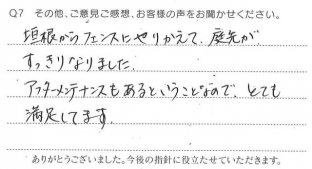 Q7 その他、ご意見ご感想、お客様の声をお聞かせください。
垣根からフェンスにやりかえて、庭先が
すっきりなりました。
アフターメンテナンスもあるということなので、とても
満足してます。
ありがとうございました。今後の指針に役立たせていただきます。